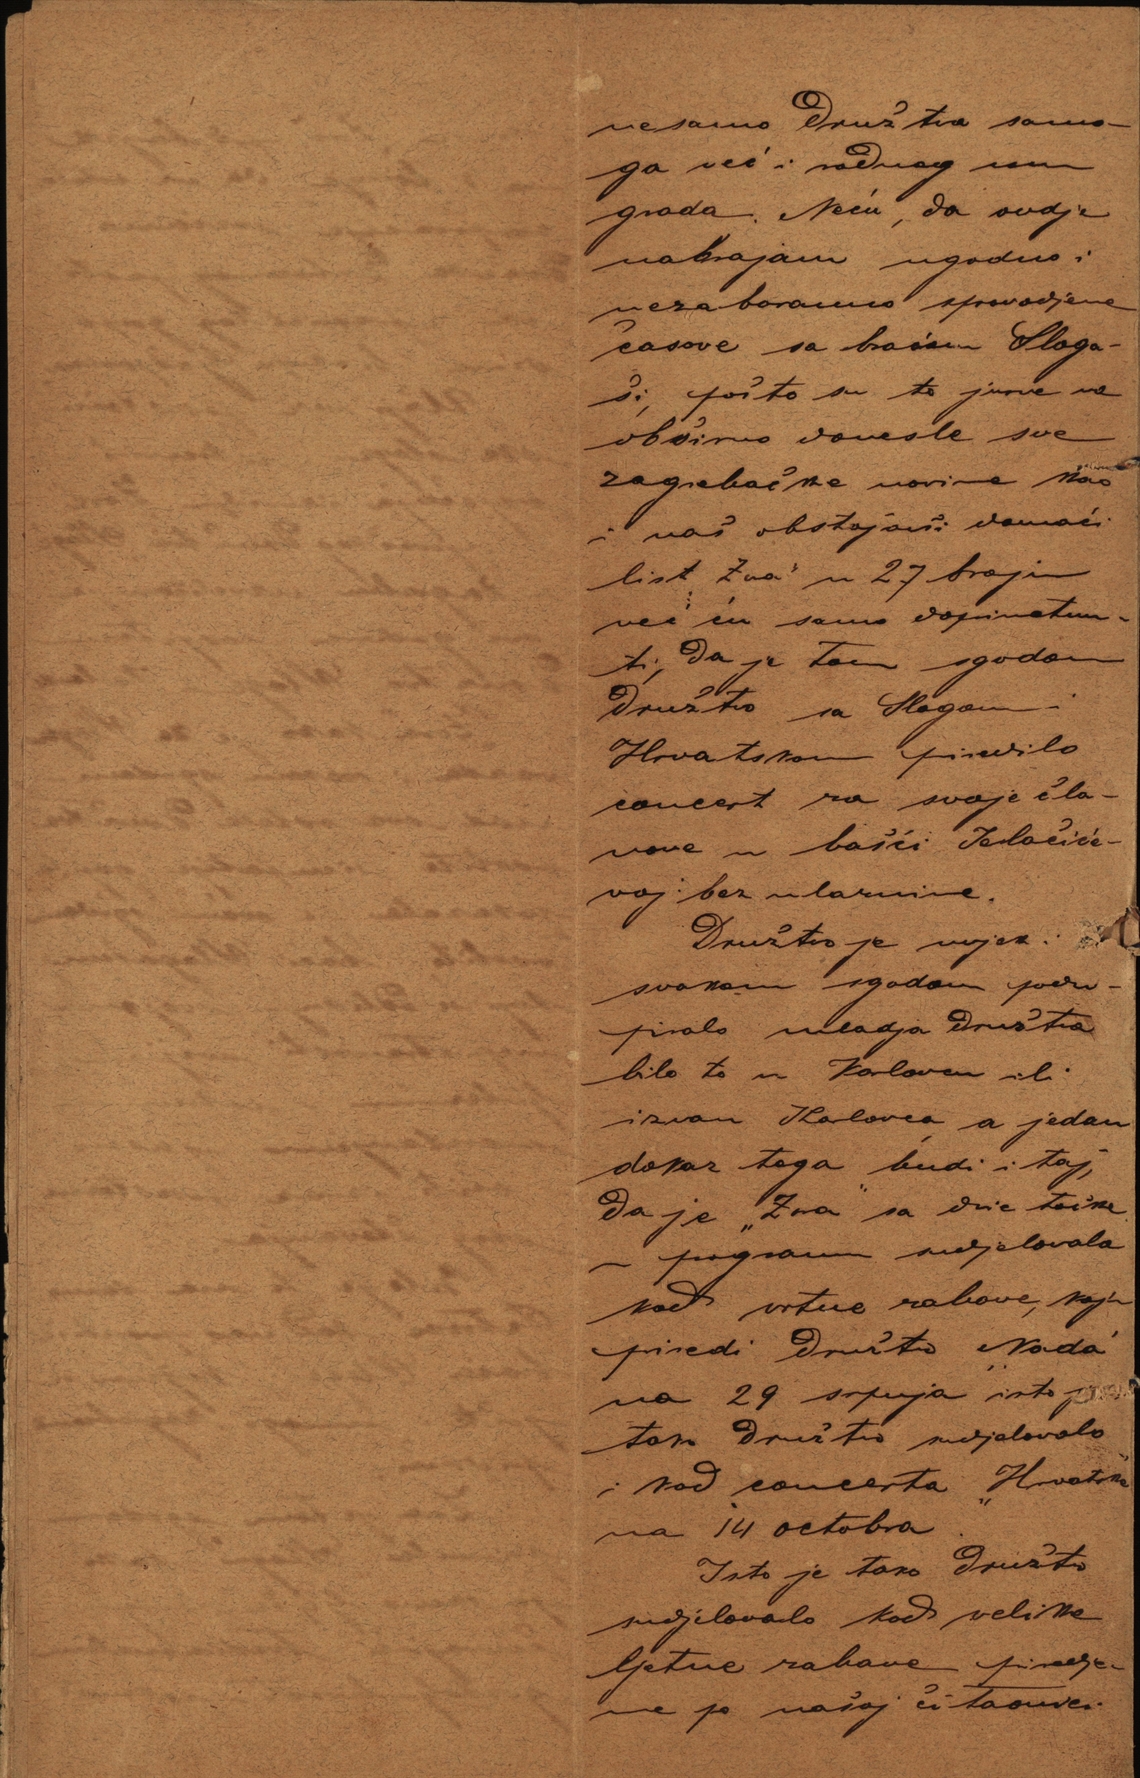 nesamo Družtva samo-
ga već i rodnog nam
grada. Neću, da ovdje
nabrajam ugodno i
nezaboravno sprovodjene
časove sa braćom Sloga-
ši, pošto su to jurve na
obširno donesle sve
zagrebačke novine kao
i naš obstojavši domaći
list „Zora" u 27 broju
već ću samo napomenu-
ti, da je tom sgodom
Družtvo sa Slogom i
Hrvatskom priredilo
concert za svoje čla-
nove u bašći Jelačiće-
voj bez ulaznine.
Družtvo je uvjek i
svakom sgodom podu-
piralo mladja Družtva
bilo to u Karlovcu ili
izvan Karlovca, a jedan
dokaz toga budi i taj,
da je „Zora" sa dvie točke
u programu sudjelovala
kod vrtne zabave, koju
priredi Družtvo „Nada"
na 29 srpnja isto
tako Družtvo sudjelovalo
i kod concerta „Hrvatske
na 14 octobra.
Isto je tako Družtvo
sudjelovalo kod velike
ljetne zabave priredje-
ne po našoj čitaonici